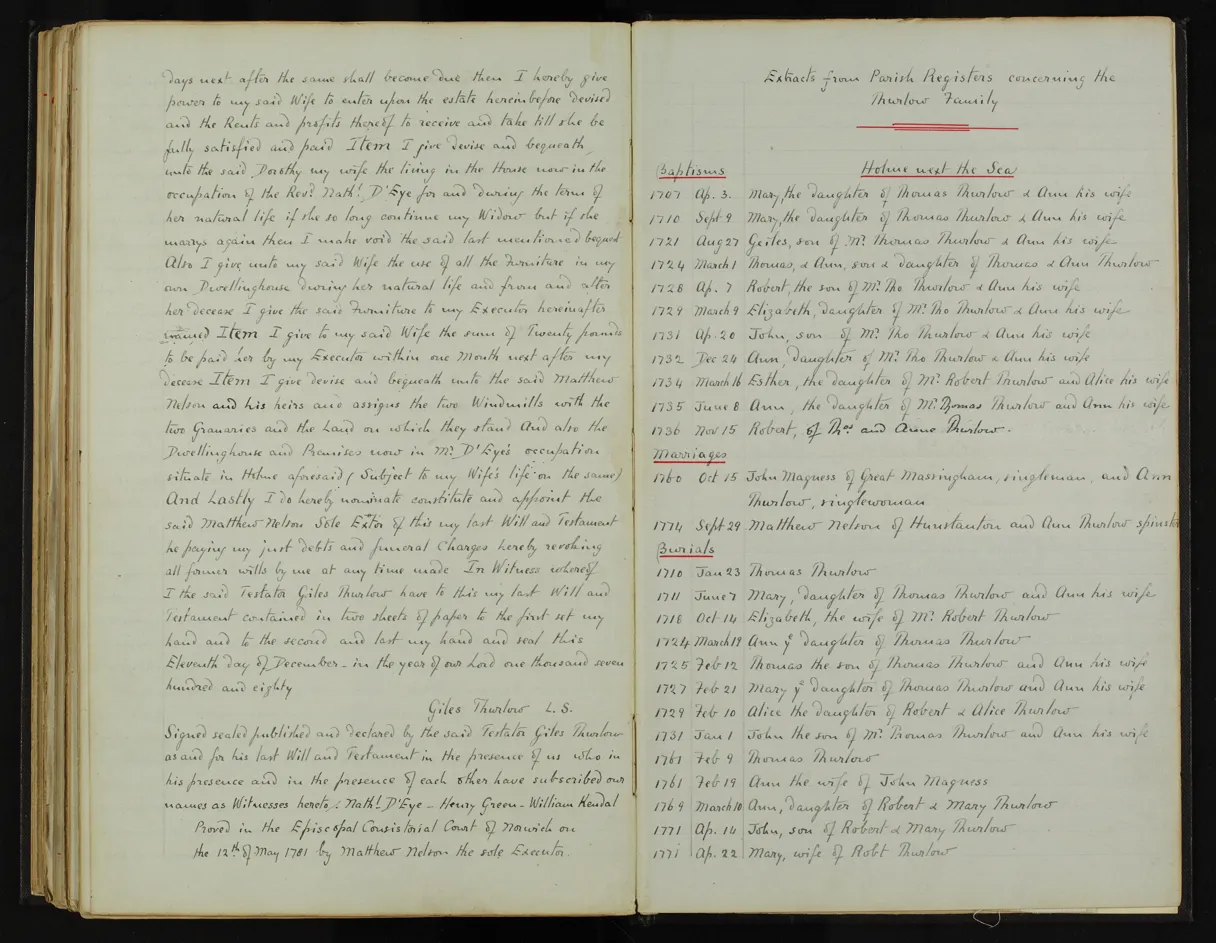 Days next after the same shall become due then I hereby give
power to my said Wife to enter upon the estate hereinbefore devised
and the Rents and profits thereof to receive and take till she be
fully satisfied and paid Item I give devise and bequeath
unto the said Dorothy my wife the living in the House now in the
occupation of the Revd. Nathl. D'Eye for and during the term of
her natural life if she so long continue my Widow but if she
marrys again then I make void the said last mentioned bequest
Also I give unto my said Wife the use of all the Furniture in my
own Dwellinghouse during her natural life and from and after
her decease I give the said Furniture to my Executor hereinafter
named Item I give to my said Wife the sum of Twenty pounds
to be paid her by my Executor within one Month next after my
decease Item I give devise and bequeath unto the said Matthew
Nelson and his heirs and assigns the two Windmills with the
two Granaries and the Land on which they stand And also the
Dwellinghouse and Premises now in Mr. D'Eye's occupation
situate in Holme aforesaid (Subject to my Wife's life on the same)
And Lastly I do hereby nominate constitute and appoint the
said Matthew Nelson Sole Extor of this my last Will and Testament
he paying my just debts and funeral Charges hereby revoking
all former wills by me at any time made In Witness whereof
I the said Testator Giles Thurlow have to this my last Will and
Testament contained in two sheets of paper to the first set my
hand and to the second and last my hand and seal this
Eleventh Day of December - in the year of our Lord one thousand seven
hundred and eighty
Giles Thurlow L.S.
Signed sealed published and declared by the said Testator Giles Thurlow
as and for his last Will and Testament in the presence of us who in
his presence and in the presence of each other have subscribed our
names as Witnesses hereto: Nathl. D'Eye - Henry Green - William Kendal
Proved in the Episcopal Consistorial Court of Norwich on
the 12th of May 1781 by Matthew Nelson the sole Executor.
Extracts from Parish Registers concerning the
Thurlow Family
Baptisms Holme next the Sea
1707 Ap. 3. Mary, the daughter of Thomas Thurlow & Ann his wife
1710 Sept 9 Mary, the daughter of Thomas Thurlow & Ann his wife
1721 Aug 27 Geiles, son of Mr. Thomas Thurlow & Ann his wife
1724 March 1 Thomas, & Ann, son & daughter of Thomas & Ann Thurlow
1728 Ap. 7 Robert, the son of Mr. Tho Thurlow & Ann his wife
1729 March 9 Elizabeth, daughter of Mr. Tho Thurlow & Ann his wife
1731 Ap. 20 John, son of Mr. Tho Thurlow & Ann his wife
1732 Dec 24 Ann, daughter of Mr. Tho Thurlow & Ann his wife
1734 March 16 Esther, the daughter of Mr. Robert Thurlow and Alice his wife
1735 June 8 Ann, the daughter of Mr. Thomas Thurlow and Ann his wife
1736 Nov 15 Robert, of Thos and Anne Thurlow.
Marriages
1760 Oct 15 John Magness of Great Massingham, singleman, and Ann
Thurlow, singlewoman
1774 Sept 29 Matthew Nelson of Hunstanton and Ann Thurlow spinster
Burials
1710 Jan 23 Thomas Thurlow
1711 June 7 Mary, daughter of Thomas Thurlow and Ann his wife
1718 Oct 14 Elizabeth, the wife of Mr. Robert Thurlow
1724 March 19 Ann ye daughter of Thomas Thurlow
1725 Feb 12 Thomas the son of Thomas Thurlow and Ann his wife
1727 Feb 21 Mary ye daughter of Thomas Thurlow and Ann his wife
1729 Feb 10 Alice the daughter of Robert & Alice Thurlow
1731 Jan 1 John the son of Mr. Thomas Thurlow and Ann his wife
1761 Feb 9 Thomas Thurlow
1761 Feb 19 Ann the wife of John Magness
1769 March 10 Ann, daughter of Robert & Mary Thurlow
1771 Ap. 14 John, son of Robert & Mary Thurlow
1771 Ap. 22 Mary, wife of Robt Thurlow